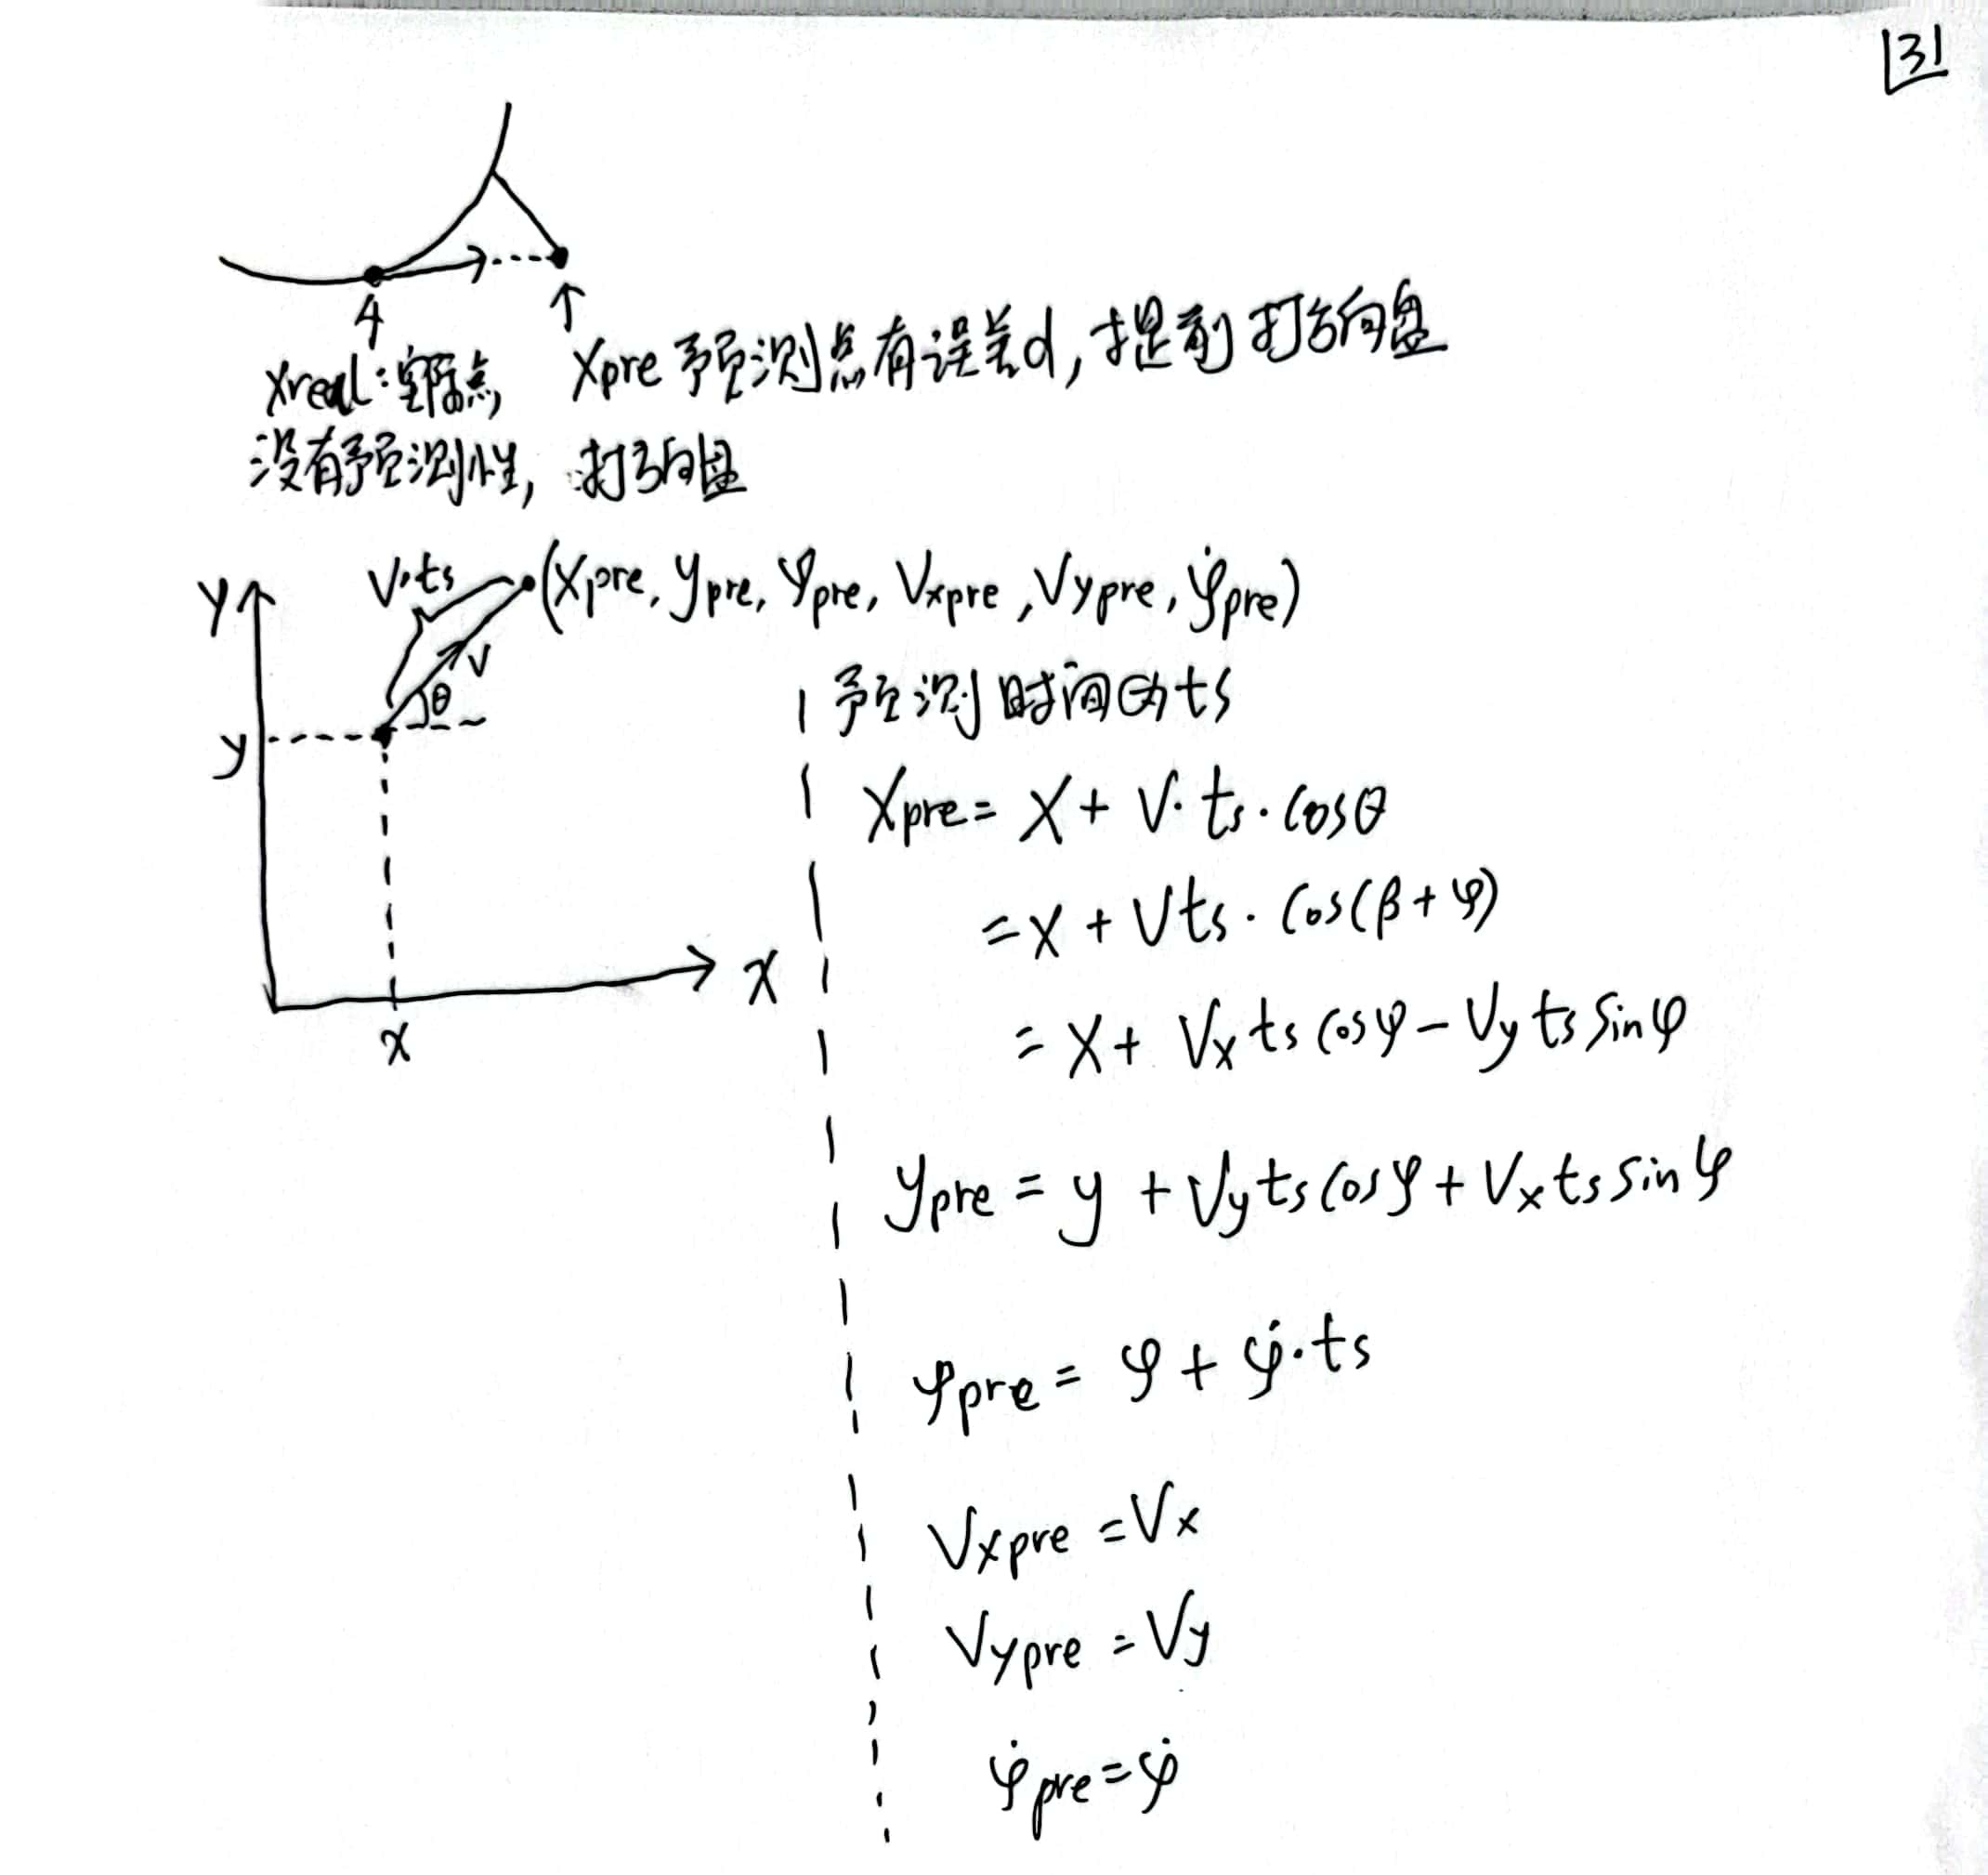 3
Xreal:实际点, Xpre 预测点有误差d, 提前打方向盘
没有预测性, 打方向盘
V·ts (Xpre, ypre, φpre, Vxpre, Vypre, φ̇pre)
Y
V
θ
y
X
x
预测时间为ts
Xpre = X + V·ts·cosθ
= X + Vts·cos(β+φ)
= X + Vxtscosφ - Vytssinφ
ypre = y + Vytscosφ + Vxtssinφ
φpre = φ + φ̇·ts
Vxpre = Vx
Vypre = Vy
φ̇pre = φ̇